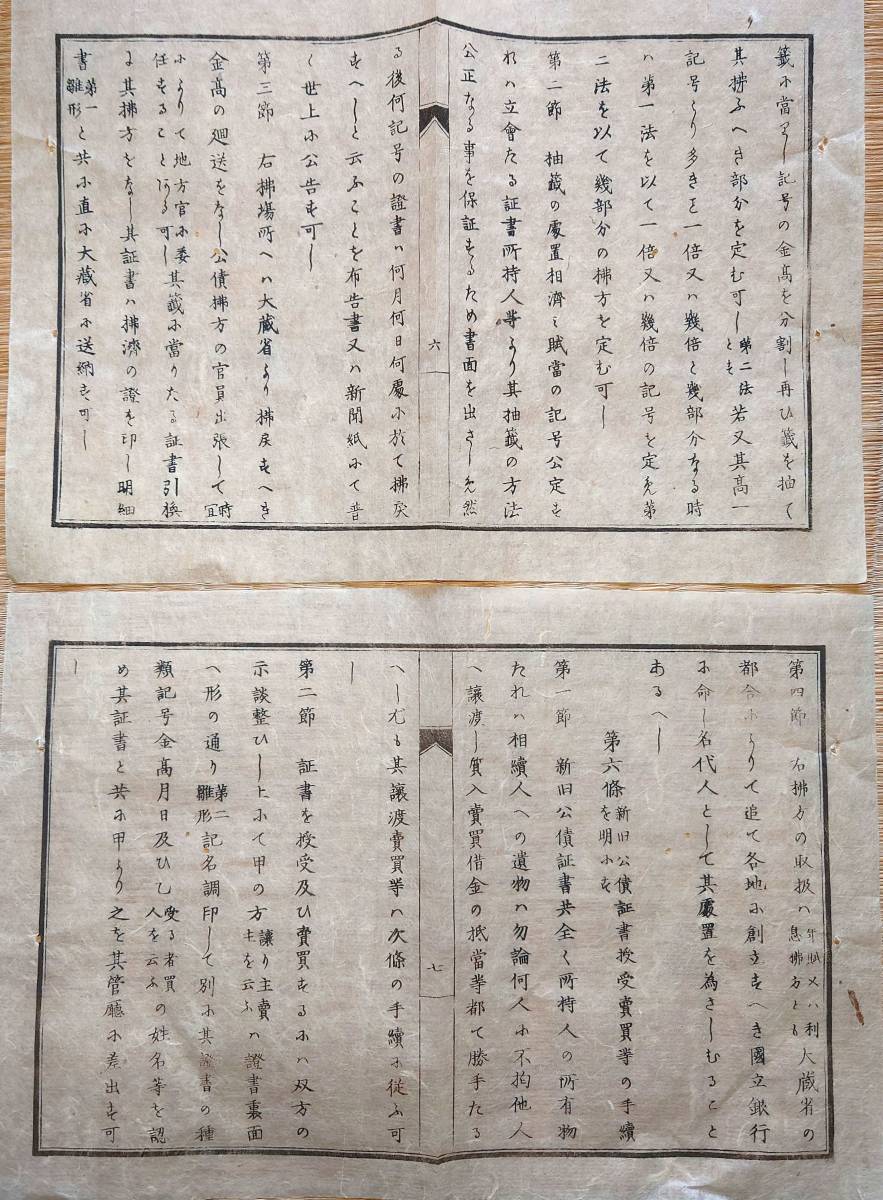 籤ニ當リシ記号の金高を分割し再ひ籤を抽て
其拂ふへき部分を定む可し第二法とも若又其高一
記号より多き𪜈一倍又ハ幾倍と幾部分なる時
ハ第一法を以て一倍又ハ幾倍の記号を定め第
二法を以て幾部分の拂方を定む可し
第二節 抽籤の處置相濟ミ賦當の記号公定す
れハ立會たる証書所持人等より其抽籤の方法
公正なる事を保証するため書面を出さしめ然
六
る後何記号の證書ハ何月何日何處に於て拂戻
すへしと云ふことを布告書又ハ新聞紙にて普
く世上に公告す可し
第三節 右拂場所へハ大藏省より拂戻すへき
金高の廻送をなし公債拂方の官員出張して時宜
によりて地方官に委任することある可し其籤に當りたる証書引換
に其拂方をなし其証書ハ拂濟の證を印し明細
書第一雛形と共に直に大藏省に送納す可し
第四節 右拂方の取扱ハ年賦又ハ利息拂方とも大藏省の
都合によりて追て各地に創立すへき國立銀行
に命し名代人として其處置を為さしむること
あるへし
第六條 新旧公債証書授受賣買等の手續を明にす
第一節 新旧公債証書共全く所持人の所有物
たれハ相續人への遺物ハ勿論何人に不拘他人
へ讓渡し質入賣買借金の抵當等都て勝手たる
七
へし尤も其讓渡賣買等ハ次條の手續に従ふ可
し
第二節 証書を授受及ひ賣買するにハ双方の
示談整ひし上にて甲の方讓り主賣主を云ふハ證書裏面
へ形の通り第二雛形記名調印して別に其證書の種
類記号金高月日及ひ乙受る者買人を云ふの姓名等を認
め其証書と共に甲より之を其管廳に差出す可
し